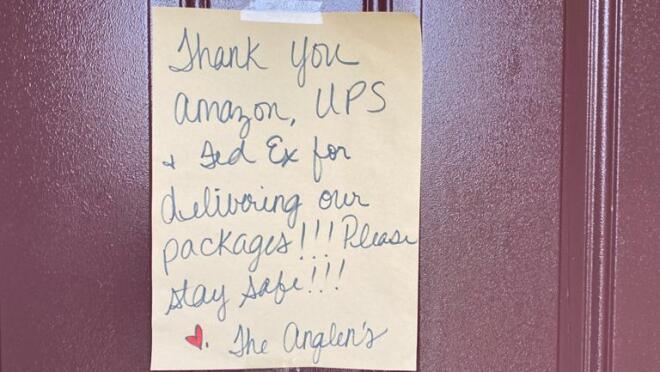 Thank you
Amazon, UPS
+ Fed Ex for
delivering our
packages!!! Please
stay safe!!!
The Anglen's